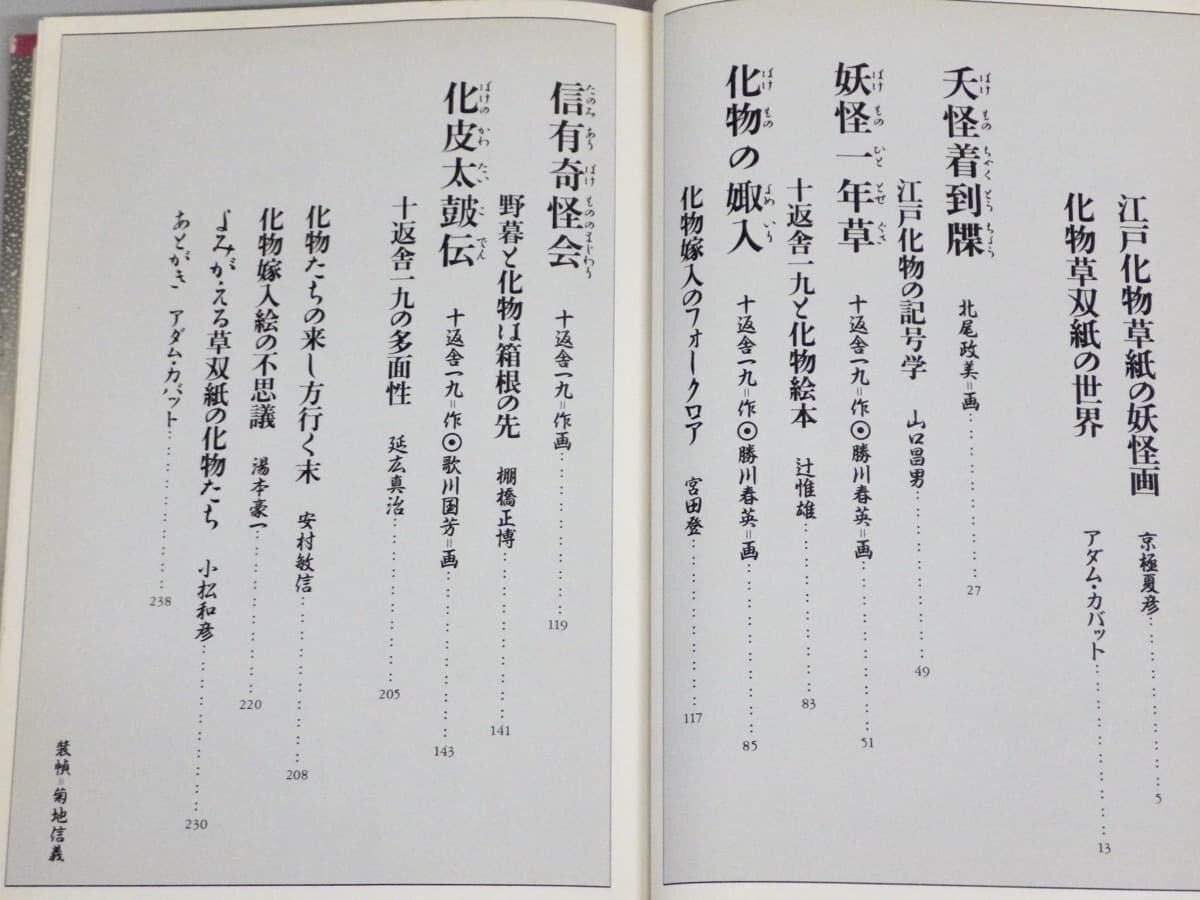 江戸化物草紙の妖怪画 京極夏彦……………………5
化物草双紙の世界 アダム・カバット……………………13
夭怪着到牒 北尾政美＝画……………………27
ばけ もの ちゃく とう ちょう
江戸化物の記号学 山口昌男……………………49
妖怪一年草 十返舎一九＝作◉勝川春英＝画……………………51
ばけ もの ひと とせ ぐさ
十返舎一九と化物絵本 辻惟雄……………………83
化物の娵入 十返舎一九＝作◉勝川春英＝画……………………85
ばけ もの よめ いり
化物嫁入のフォークロア 宮田登……………………117
信有奇怪会 十返舎一九＝作画……………………119
たのみ あり ばけ もののまじわり
野暮と化物は箱根の先 棚橋正博……………………141
化皮太鼓伝 十返舎一九＝作◉歌川国芳＝画……………………143
ばけの かわ たい こ でん
十返舎一九の多面性 延広真治……………………205
化物たちの来し方行く末 安村敏信……………………208
化物嫁入絵の不思議 湯本豪一……………………220
よみがえる草双紙の化物たち 小松和彦……………………230
あとがき アダム・カバット……………………238
装幀＝菊地信義